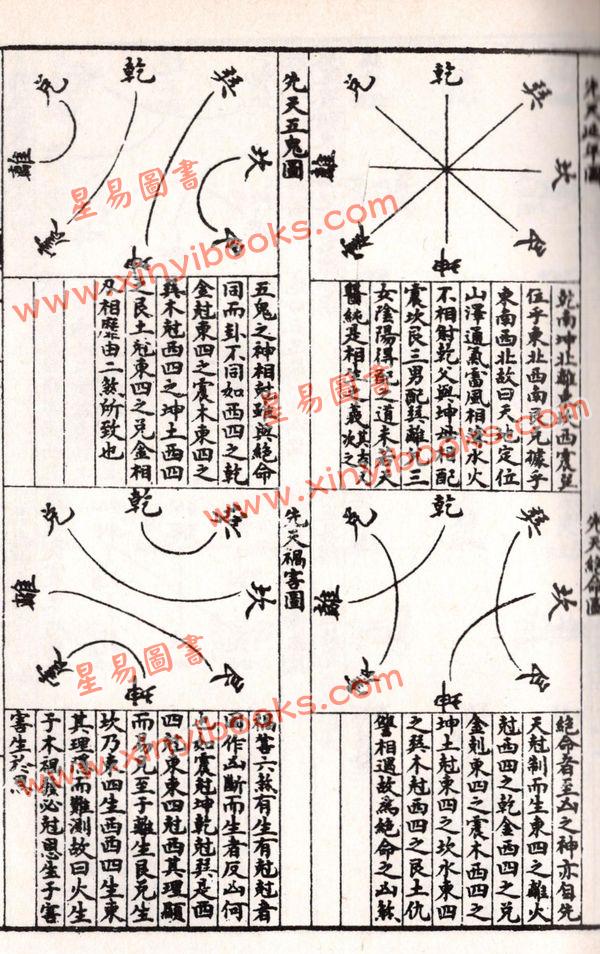 先天延年圖
乾
巽
坎
艮
坤
震
離
兌
乾南坤北離東坎西震巽
位乎東北西南艮兌據乎
東南西北故曰天地定位
山澤通氣雷風相薄水火
不相射乾父與坤母相配
震坎艮三男配巽離兌三
女陰陽得配之道未若夫
先天五鬼圖
乾
巽
坎
艮
坤
震
離
兌
五鬼之神相尅雖與絕命
同而卦不同如西四之乾
金尅東四之震木東四之
巽木尅西四之坤土西四
之艮土尅東四之
兌金相
相歷由二煞所致也
先天絕命圖
乾
巽
坎
艮
坤
震
離
兌
絕命者至凶之神亦自先
天尅制而生東四之離火
尅西四之乾金西四之兌
金剋東四之震木西四之
坤土尅東四之坎水東四
之巽木尅西四之艮土仇
讐相遇故為絕命之凶煞
先天禍害圖
乾
巽
坎
艮
坤
震
離
兌
禍害六煞有生有尅尅者
固作凶斷而生者反凶何
如震尅坤乾尅巽是西
四尅東東四尅西其理顯
而易見至于離生艮兌生
坎乃東四生西西四生東
其理隱而難測故曰火生
于木禍發必尅恩生于害
害生于恩
星易圖書
www.xinyibooks.com
星易圖書
www.xinyibooks.com
星易圖書
www.xinyibooks.com
星易圖書
www.xinyibooks.com